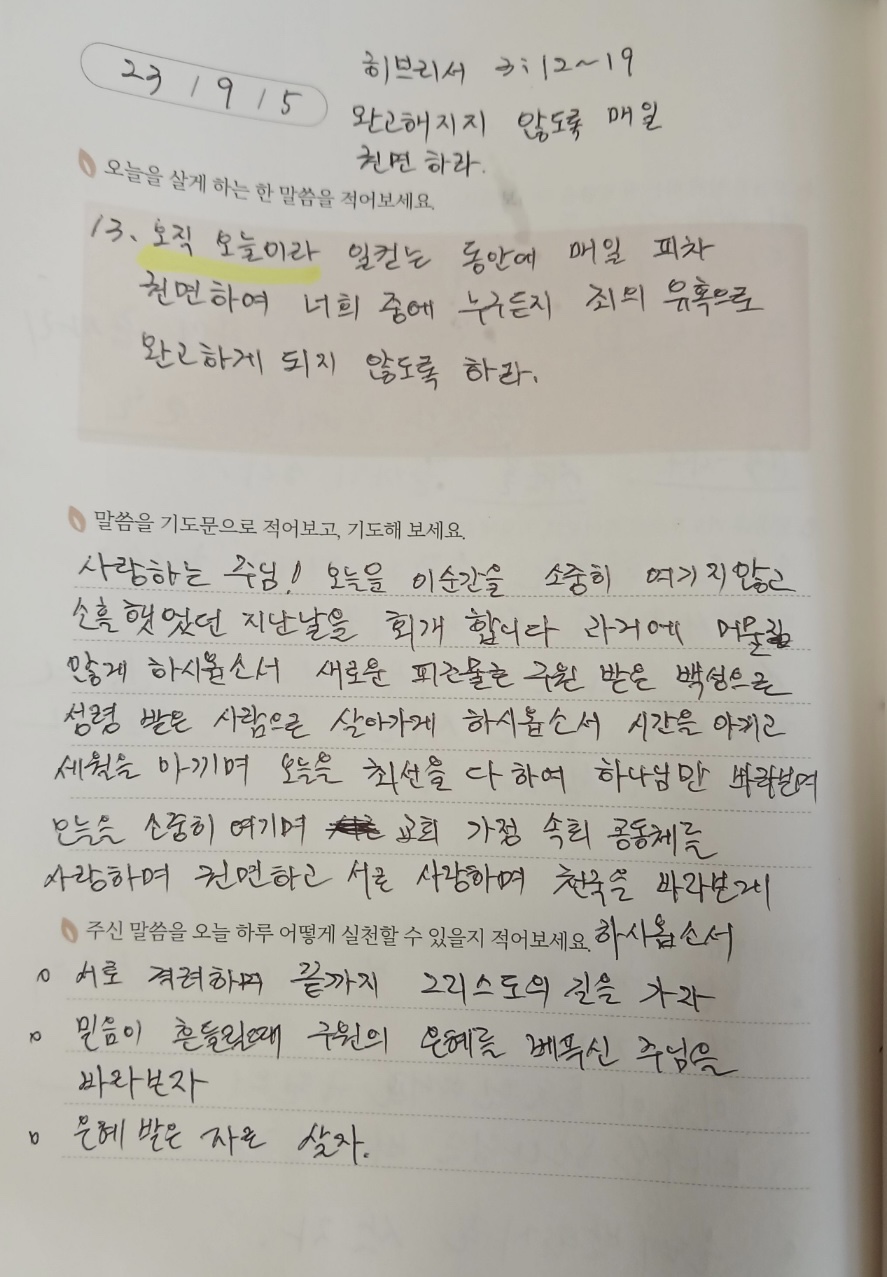 23 / 9 / 5
히브리서 3:12~19
완고해지지 않도록 매일
권면하라.
오늘을 살게 하는 한 말씀을 적어보세요.
13. 오직 오늘이라 일컫는 동안에 매일 피차
권면하여 너희 중에 누구든지 죄의 유혹으로
완고하게 되지 않도록 하라.
말씀을 기도문으로 적어보고, 기도해 보세요.
사랑하는 주님! 오늘을 이순간을 소중히 여기지않고
소홀했었던 지난날을 회개 합니다 과거에
않게 하시옵소서 새로운 피조물로 구원 받은 백성으로
성령 받은 사람으로 살아가게 하시옵소서 시간을 아끼고
세월을 아끼며 오늘을 최선을 다하여 하나님만 바라보며
오늘을 소중히 여기며 교회 가정 속회 공동체를
사랑하며 권면하고 서로 사랑하며 천국을 바라보게
하시옵소서
주신 말씀을 오늘 하루 어떻게 실천할 수 있을지 적어보세요.
o 서로 격려하며 끝까지 그리스도의 길을 가자
o 믿음이 흔들릴때 구원의 은혜를 베푸신 주님을
바라보자
o 은혜 받은 자로 살자.